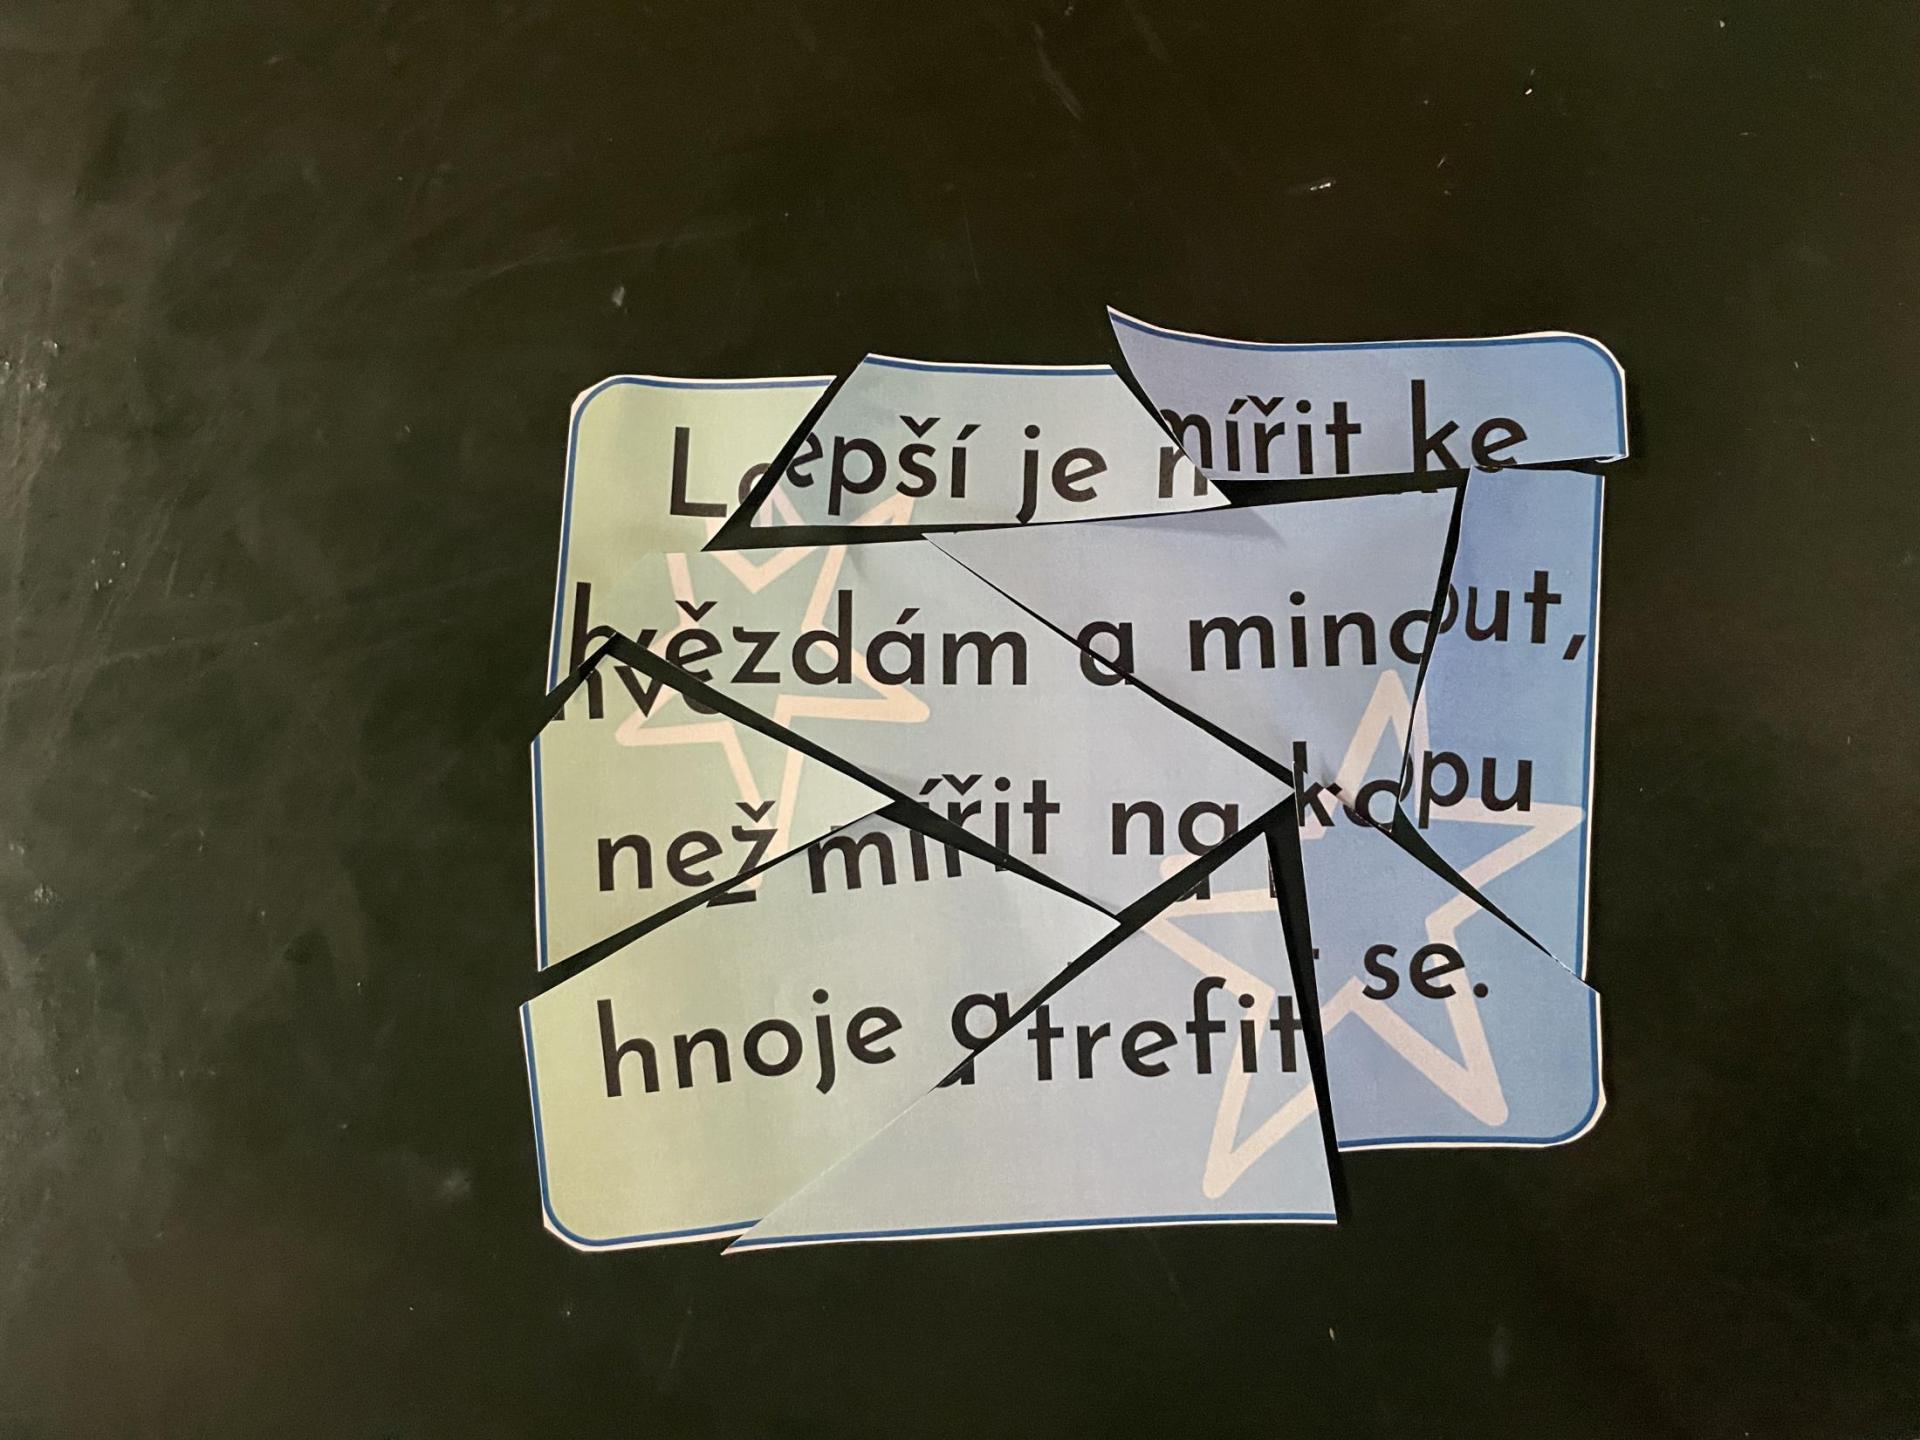 Lepší je mířit ke
hvězdám a minout,
než mířit na kopu
hnoje a trefit se.